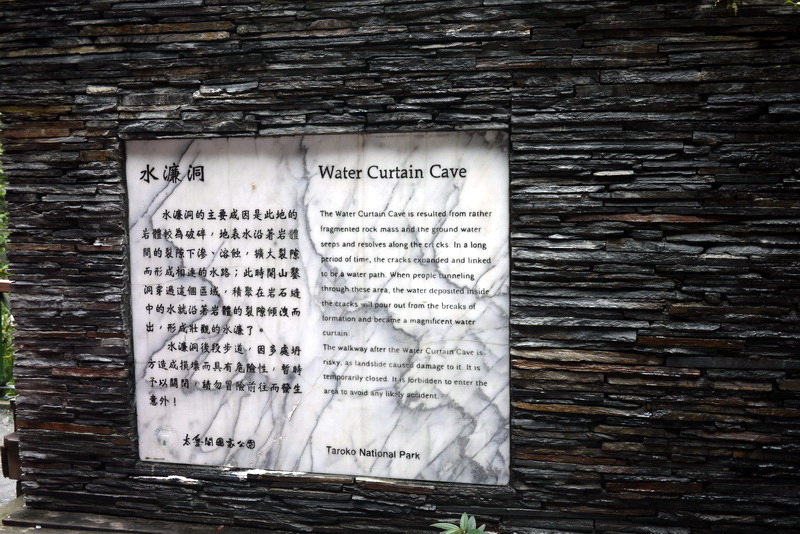 水濂洞
水濂洞的主要成因是此地的
岩體較為破碎，地表水沿著岩體
間的裂隙下滲、溶蝕，擴大裂隙
而形成相連的水路；此時開山鑿
洞穿過這個區域，積聚在岩石縫
中的水就沿著岩體的裂隙傾洩而
出，形成壯觀的水濂了。
水濂洞後段步道，因多處坍
方造成損壞而具有危險性，暫時
予以關閉，請勿冒險前往而發生
意外！
太魯閣國家公園
Water Curtain Cave
The Water Curtain Cave is resulted from rather
fragmented rock mass and the ground water
seeps and resolves along the cricks. In a long
period of time, the cracks expanded and linked
to be a water path. When people tunneling
through these area, the water deposited inside
the cracks will pour out from the breaks of
formation and became a magnificent water
curtain.
The walkway after the Water Curtain Cave is
risky, as landslide caused damage to it. It is
temporarily closed. It is forbidden to enter the
area to avoid any likely accident.
Taroko National Park